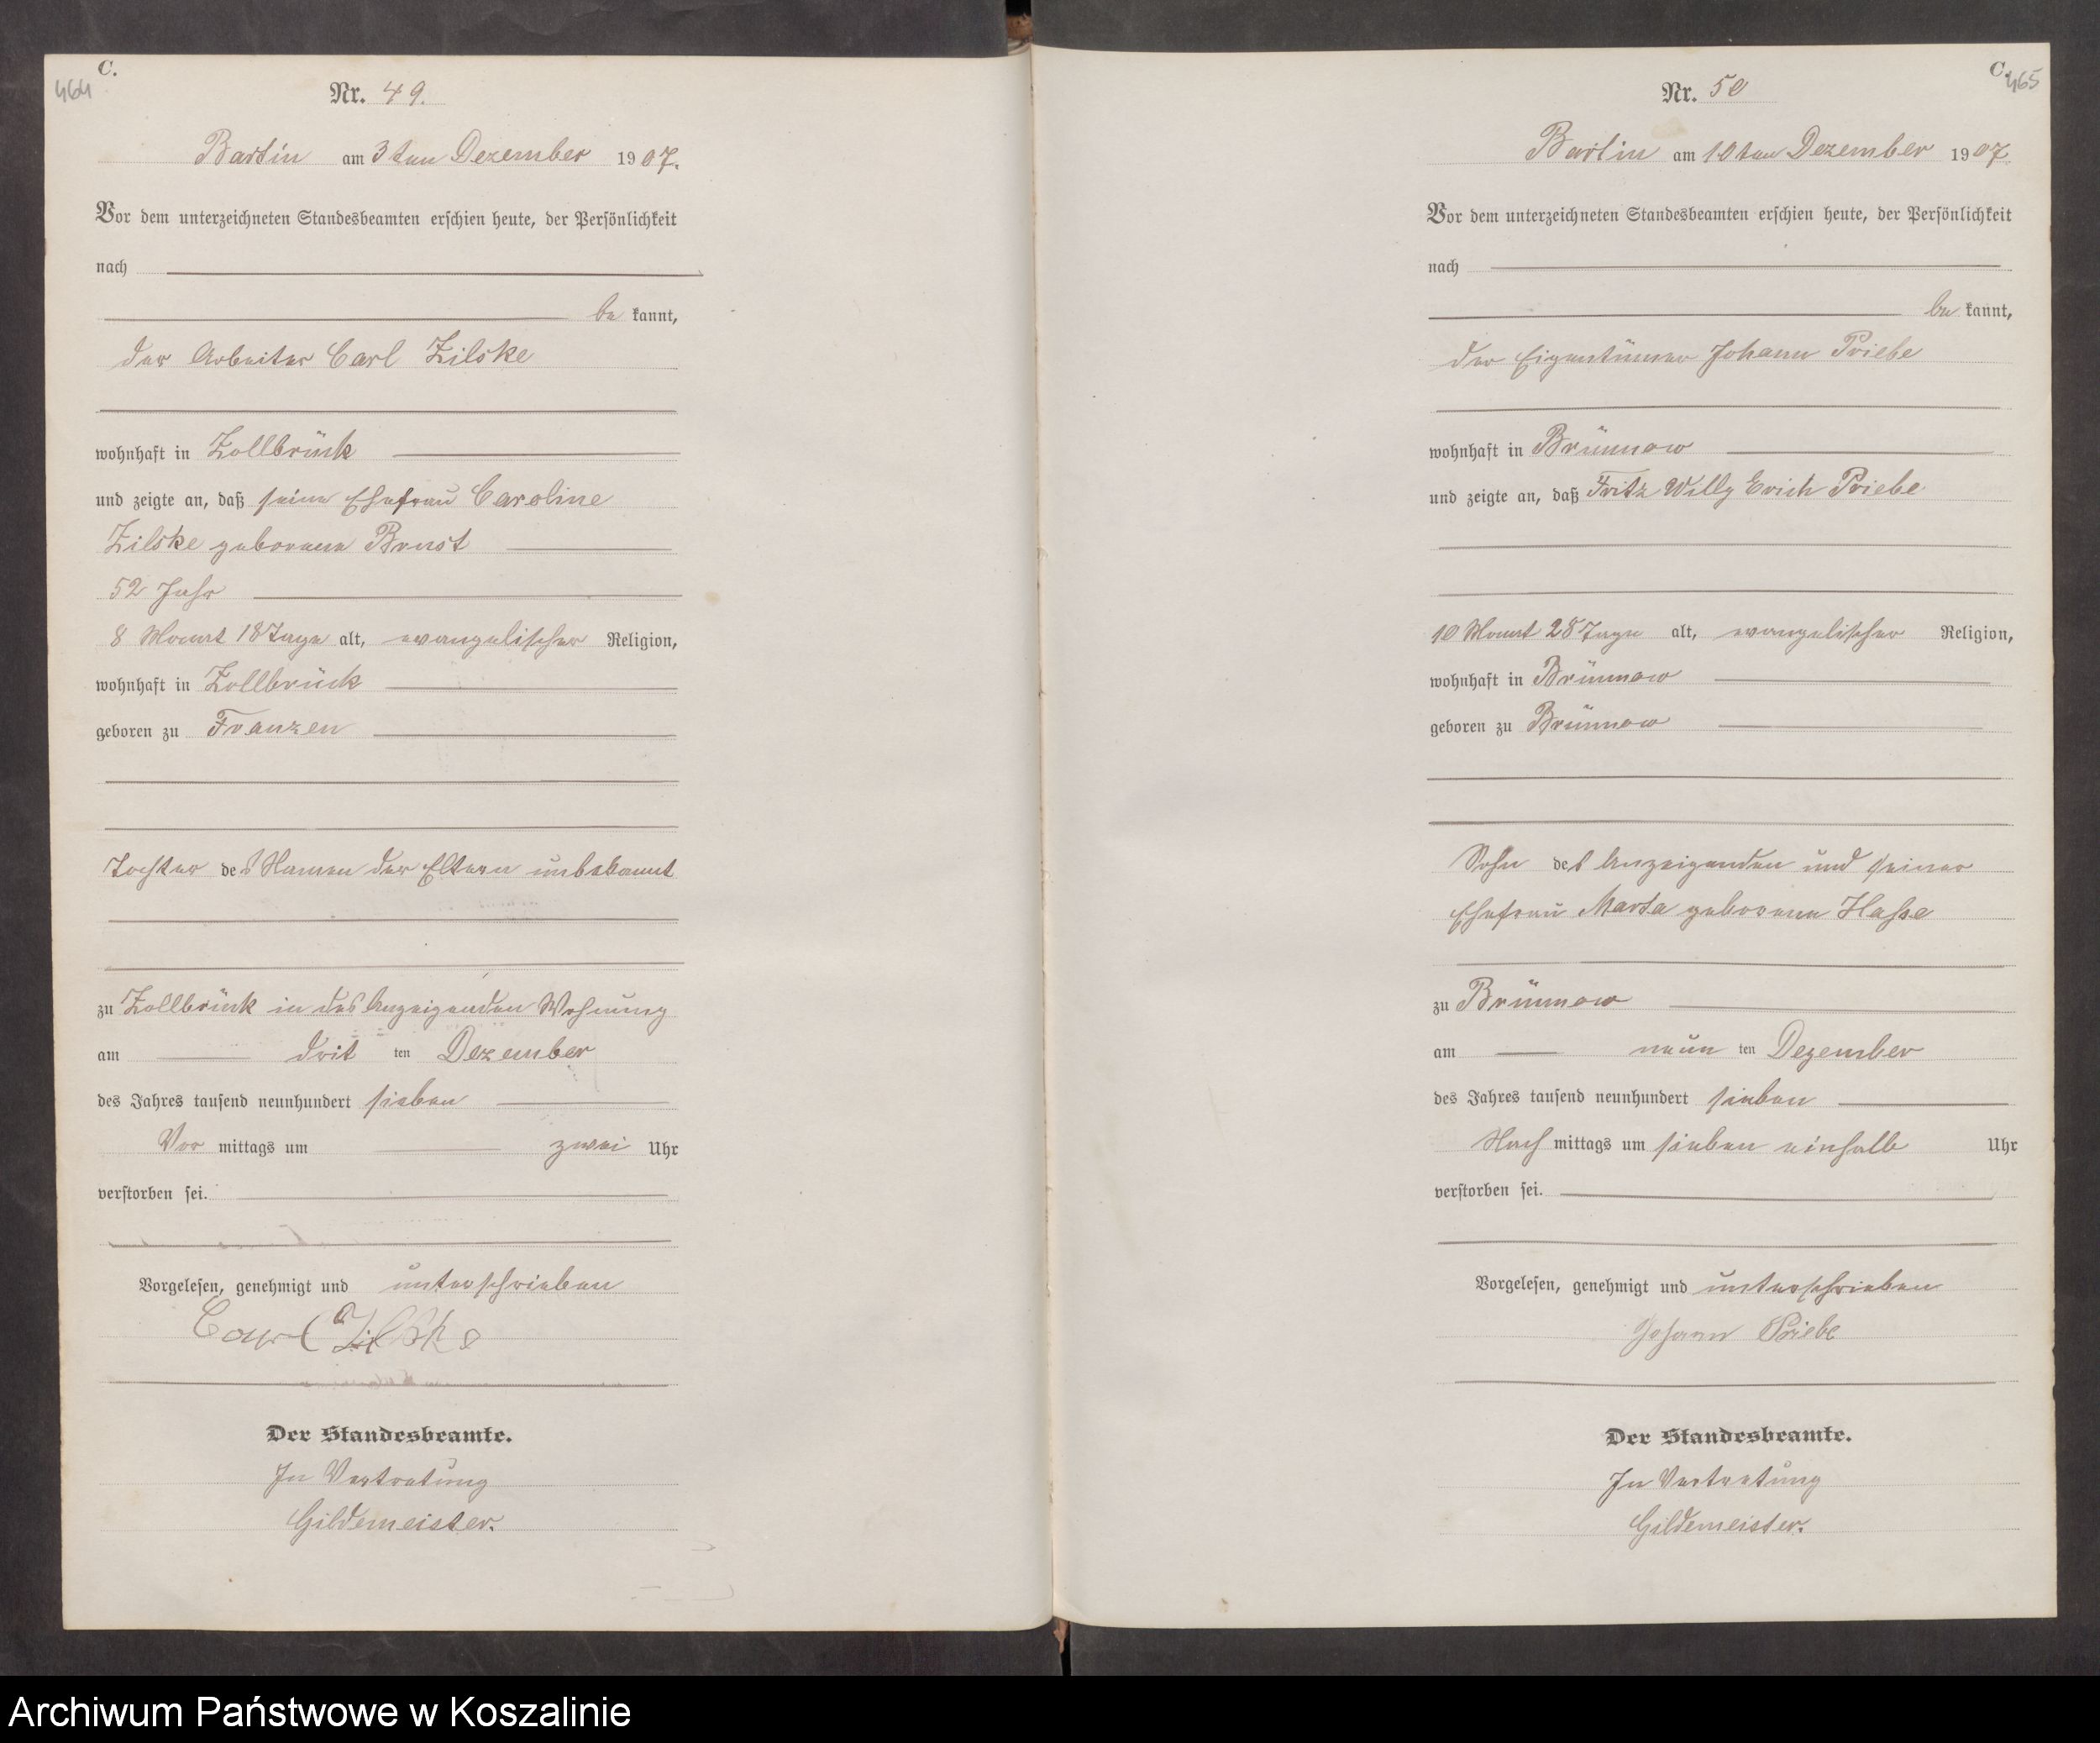 464
C.
Nr. 49.
Bartin am 3ten Dezember 1907.
Vor dem unterzeichneten Standesbeamten erschien heute, der Persönlichkeit
nach
be kannt,
der Arbeiter Carl Zilske
wohnhaft in Zollbrück
und zeigte an, daß seine Ehefrau Caroline
Zilske geborene Brust
52 Jahr
8 Monat 18 Tage alt, evangelischer Religion,
wohnhaft in Zollbrück
geboren zu Franzen
Tochter des Namen der Eltern unbekannt
zu Zollbrück in des Anzeigenden Wohnung
am drit ten Dezember
des Jahres tausend neunhundert sieben
Vor mittags um zwei Uhr
verstorben sei.
Vorgelesen, genehmigt und unterschrieben
Carl Zilske
Der Standesbeamte.
In Vertretung
Gildemeister.
C.
465
Nr. 50
Bartin am 10ten Dezember 1907
Vor dem unterzeichneten Standesbeamten erschien heute, der Persönlichkeit
nach
be kannt,
der Eigentümer Johann Priebe
wohnhaft in Brünnow
und zeigte an, daß Fritz Willy Erich Priebe
10 Monat 28 Tage alt, evangelischer Religion,
wohnhaft in Brünnow
geboren zu Brünnow
Sohn des Anzeigenden und seiner
Ehefrau Marta geborene Hasse
zu Brünnow
am neun ten Dezember
des Jahres tausend neunhundert sieben
Nach mittags um sieben einhalb Uhr
verstorben sei.
Vorgelesen, genehmigt und unterschrieben
Johann Priebe
Der Standesbeamte.
In Vertretung
Gildemeister.
Archiwum Państwowe w Koszalinie